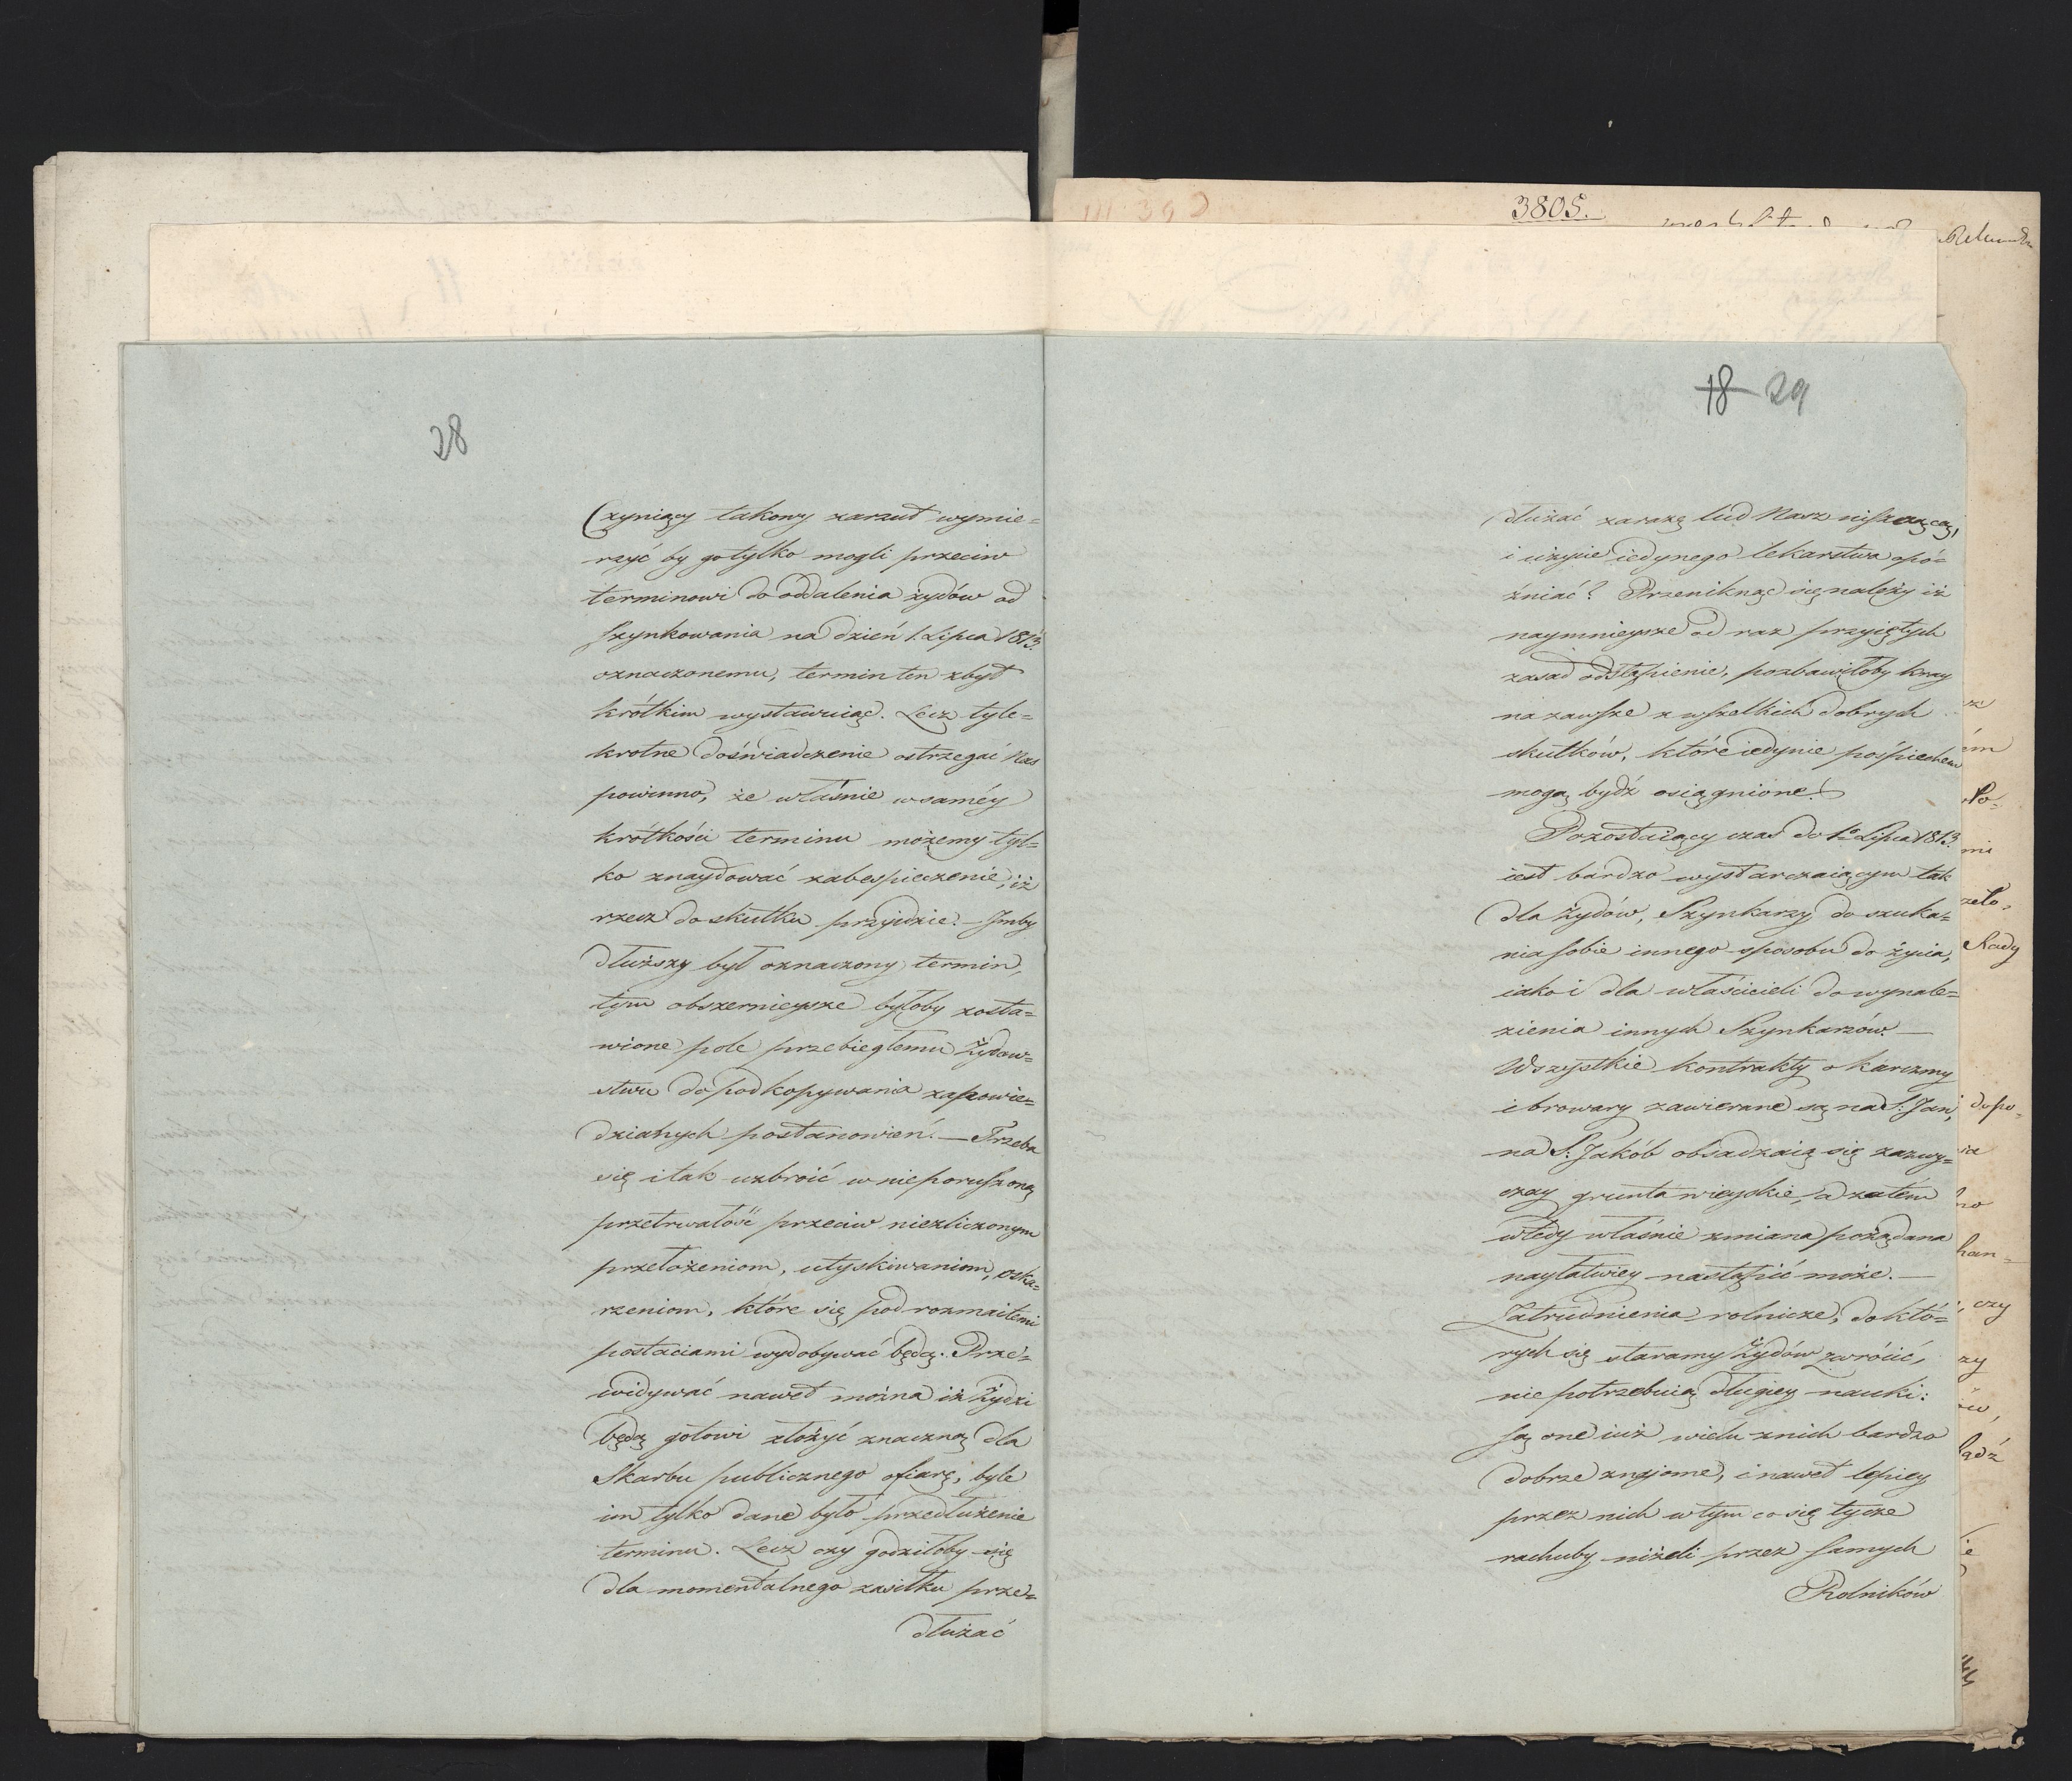 28
Czyniący takowy zarzut wymie=
rzyć by go tylko mogli przeciw
terminowi do oddalenia żydów od
szynkowania na dzień 1. Lipca 1813.
oznaczonemu, termin ten zbyt
krótkim wystawuiąc. Lecz tyle=
krotne doświadczenie ostrzegać Nas
powinno, że właśnie w saméy
krótkości terminu możemy tyl=
ko znaydować zabespieczenie, iż
rzecz do skutku przyjdzie. – Imby
dłuższy był oznaczony termin,
tym obszernieysze byłoby zosta=
wione pole przebiegłemu Żydow=
stwu do podkopywania zapowie=
dzianych postanowień. – Trzeba
się i tak uzbroić w nieporuszoną
przetrwałość przeciw niezliczonym
przełożeniom, utyskiwaniom, oska=
rzeniom, które się pod rozmaitemi
postaciami wydobywać będą. Prze=
widywać nawet można iż Żydzi
będą gotowi złożyć znaczną dla
Skarbu publicznego ofiarę, byle
im tylko dane było przedłużenie
terminu. Lecz czy godziłoby się
dla momentalnego zasiłku prze=
dłużać
3805.
18 29
dłużać zarazę lud Nasz niszczącą,
i użycie iedynego lekarstwa opó=
źniać? Przeniknąć się należy iż
naymnieysze od raz przyiętych
zasad odstąpienie, pozbawiłoby kray
na zawsze z wszelkich dobrych
skutków, które iedynie pośpiechem
mogą bydź osiągnione.
Pozostaiący czas do 1o Lipca 1813.
iest bardzo wystarczaiącym tak
dla Żydów, Szynkarzy do szuka=
nia sobie innego sposobu do życia,
iako i dla właścicieli do wynale=
zienia innych Szynkarzów. –
Wszystkie kontrakty o karczmy
i browary zawierane są na S: Jan,
na S: Jakób obsadzaią się zazwy=
czay grunta wieyskie, a zatém
wtedy właśnie zmiana pożądana
nayłatwiey nastąpić może. –
Zatrudnienia rolnicze, do któ=
rych się staramy Żydów zwrócić,
nie potrzebuią długiey nauki:
są one iuż wielu z nich bardzo
dobrze znajome, i nawet lepiey
przez nich w tym co się tycze
rachuby niżeli przez samych
Rolników